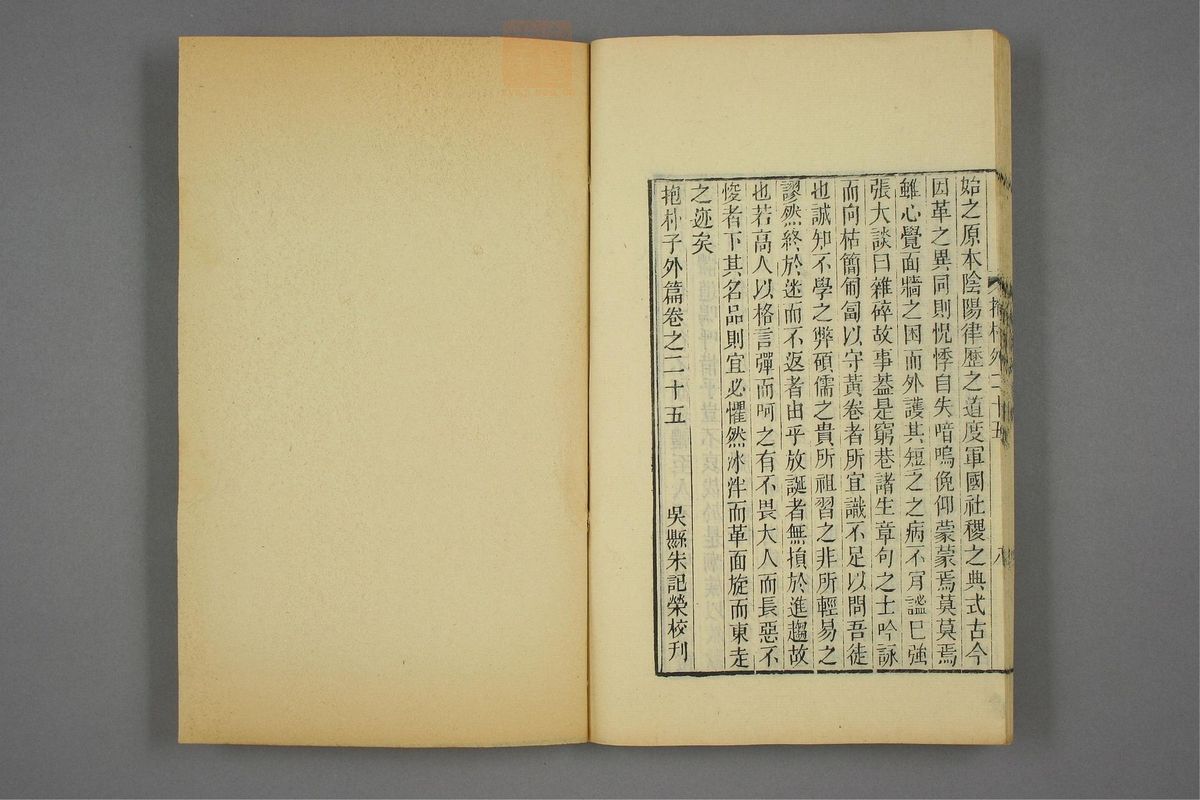 始之原本陰陽律歷之道度軍國社稷之典式古今
因革之異同則怳悸自失喑嗚俛仰蒙蒙焉莫莫焉
雖心覺面牆之困而外護其短乏之病不肯謐巳強
張大談曰雜碎故事葢是窮巷諸生章句之士吟詠
而向枯簡匍匐以守黃卷者所宜識不足以問吾徒
也誠知不學之弊碩儒之貴所祖習之非所輕易之
謬然終於迷而不返者由乎放誕者無損於進趨故
也若高人以格言彈而呵之有不畏大人而長惡不
悛者下其名品則宜必懼然冰泮而革面旋而東走
之迹矣
抱朴子外篇卷之二十五 吳縣朱記榮校刊
抱朴外二十五
八